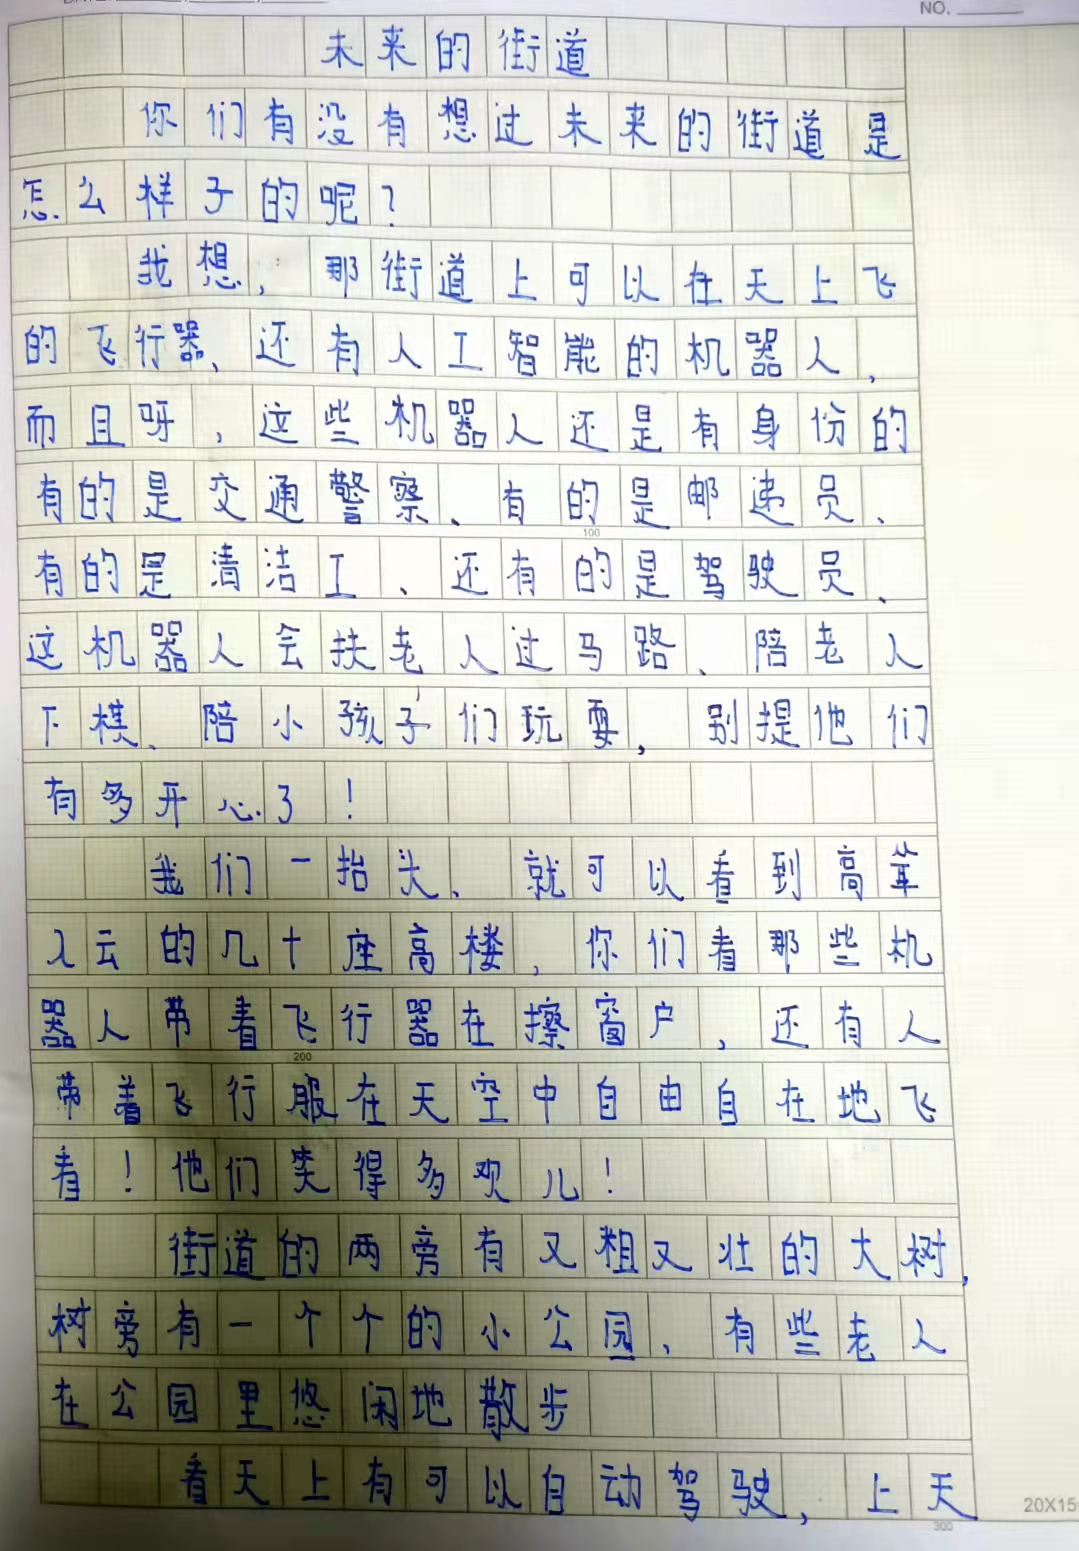 NO.
未来的街道
你们有没有想过未来的街道是
怎么样子的呢?
我想,那街道上可以在天上飞
的飞行器、还有人工智能的机器人,
而且呀,这些机器人还是有身份的
有的是交通警察、有的是邮递员、
有的是清洁工、还有的是驾驶员、
这机器人会扶老人过马路、陪老人
下棋、陪小孩子们玩耍,别提他们
有多开心了!
我们一抬头、就可以看到高耸
入云的几十座高楼,你们看那些机
器人带着飞行器在擦窗户,还有人
带着飞行服在天空中自由自在地飞
着!他们笑得多欢儿!
街道的两旁有又粗又壮的大树,
树旁有一个个的小公园、有些老人
在公园里悠闲地散步
看天上有可以自动驾驶,上天
100
200
300
20X15